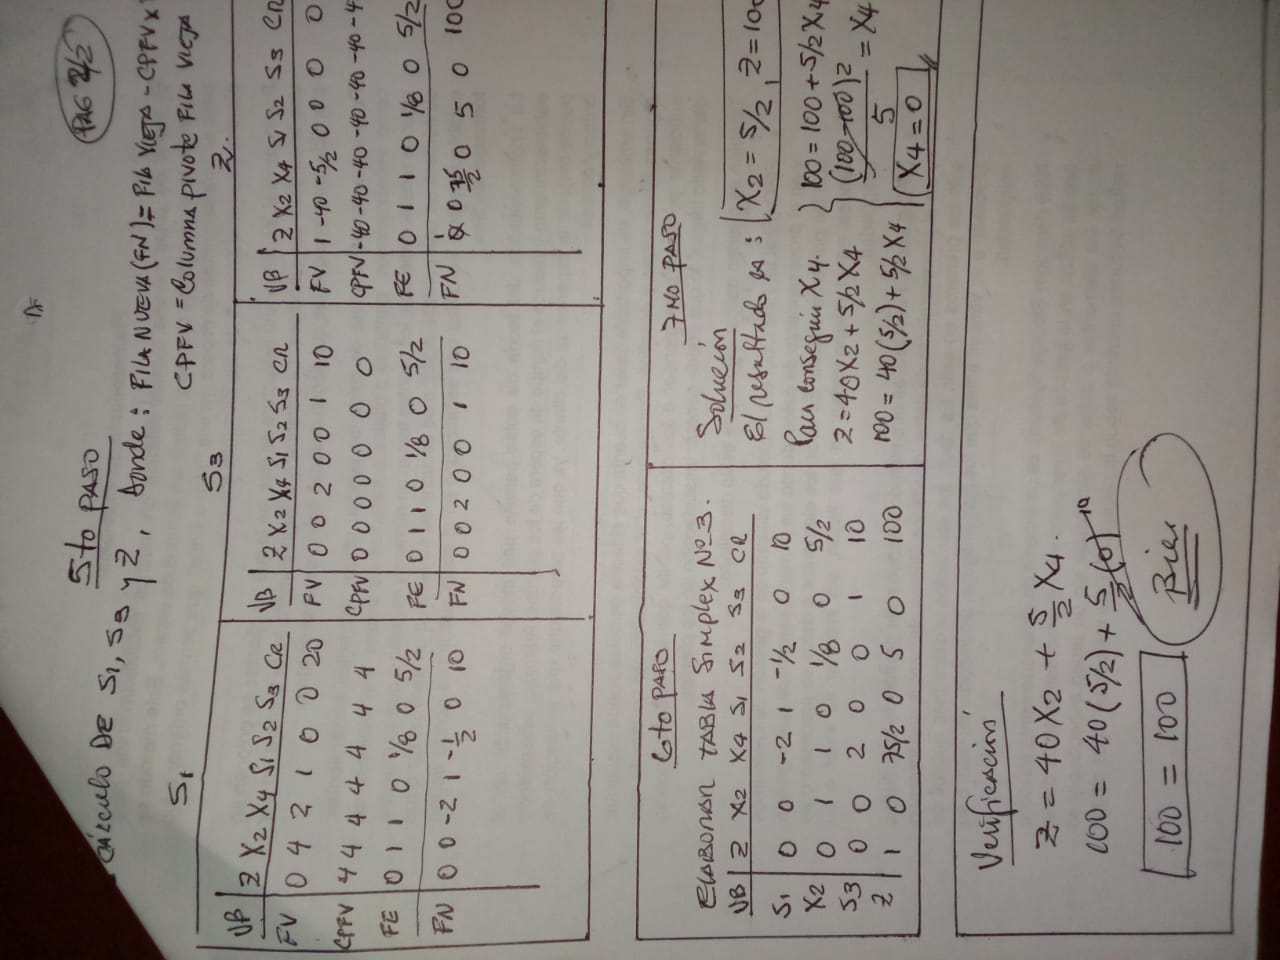 PAG 2/2
5to PASO
CÁlculo DE S1, S3 y Z, donde: FILA NUEVA (FN) = FILA VIEJA - CPFV x
CPFV = Columna pivote FILA VIEJA
S1
VB Z X2 X4 S1 S2 S3 CR
FV 0 4 2 1 0 0 20
CPFV 4 4 4 4 4 4 4
FE 0 1 1 0 1/8 0 5/2
FN 0 0 -2 1 -1/2 0 10
S3
VB Z X2 X4 S1 S2 S3 CR
FV 0 0 2 0 0 1 10
CPFV 0 0 0 0 0 0 0
FE 0 1 1 0 1/8 0 5/2
FN 0 0 2 0 0 1 10
Z
VB Z X2 X4 S1 S2 S3 CR
FV 1 -40 -5/2 0 0 0 0
CPFV -40 -40 -40 -40 -40 -40 -4
FE 0 1 1 0 1/8 0 5/2
FN 1 0 75/2 0 5 0 100
6to PASO
ElABORAR TABLA SIMPLEX No 3.
VB Z X2 X4 S1 S2 S3 CR
S1 0 0 -2 1 -1/2 0 10
X2 0 1 1 0 1/8 0 5/2
S3 0 0 2 0 0 1 10
Z 1 0 75/2 0 5 0 100
7MO PASO
Solución
El resultado es: X2 = 5/2, Z = 100
Para conseguir X4.
Z = 40X2 + 5/2 X4
100 = 40(5/2) + 5/2 X4
100 = 100 + 5/2 X4
(100-100)2 / 5 = X4
X4 = 0
Verificación
Z = 40X2 + 5/2 X4.
100 = 40(5/2) + 5/2 (0)
100 = 100
Bien